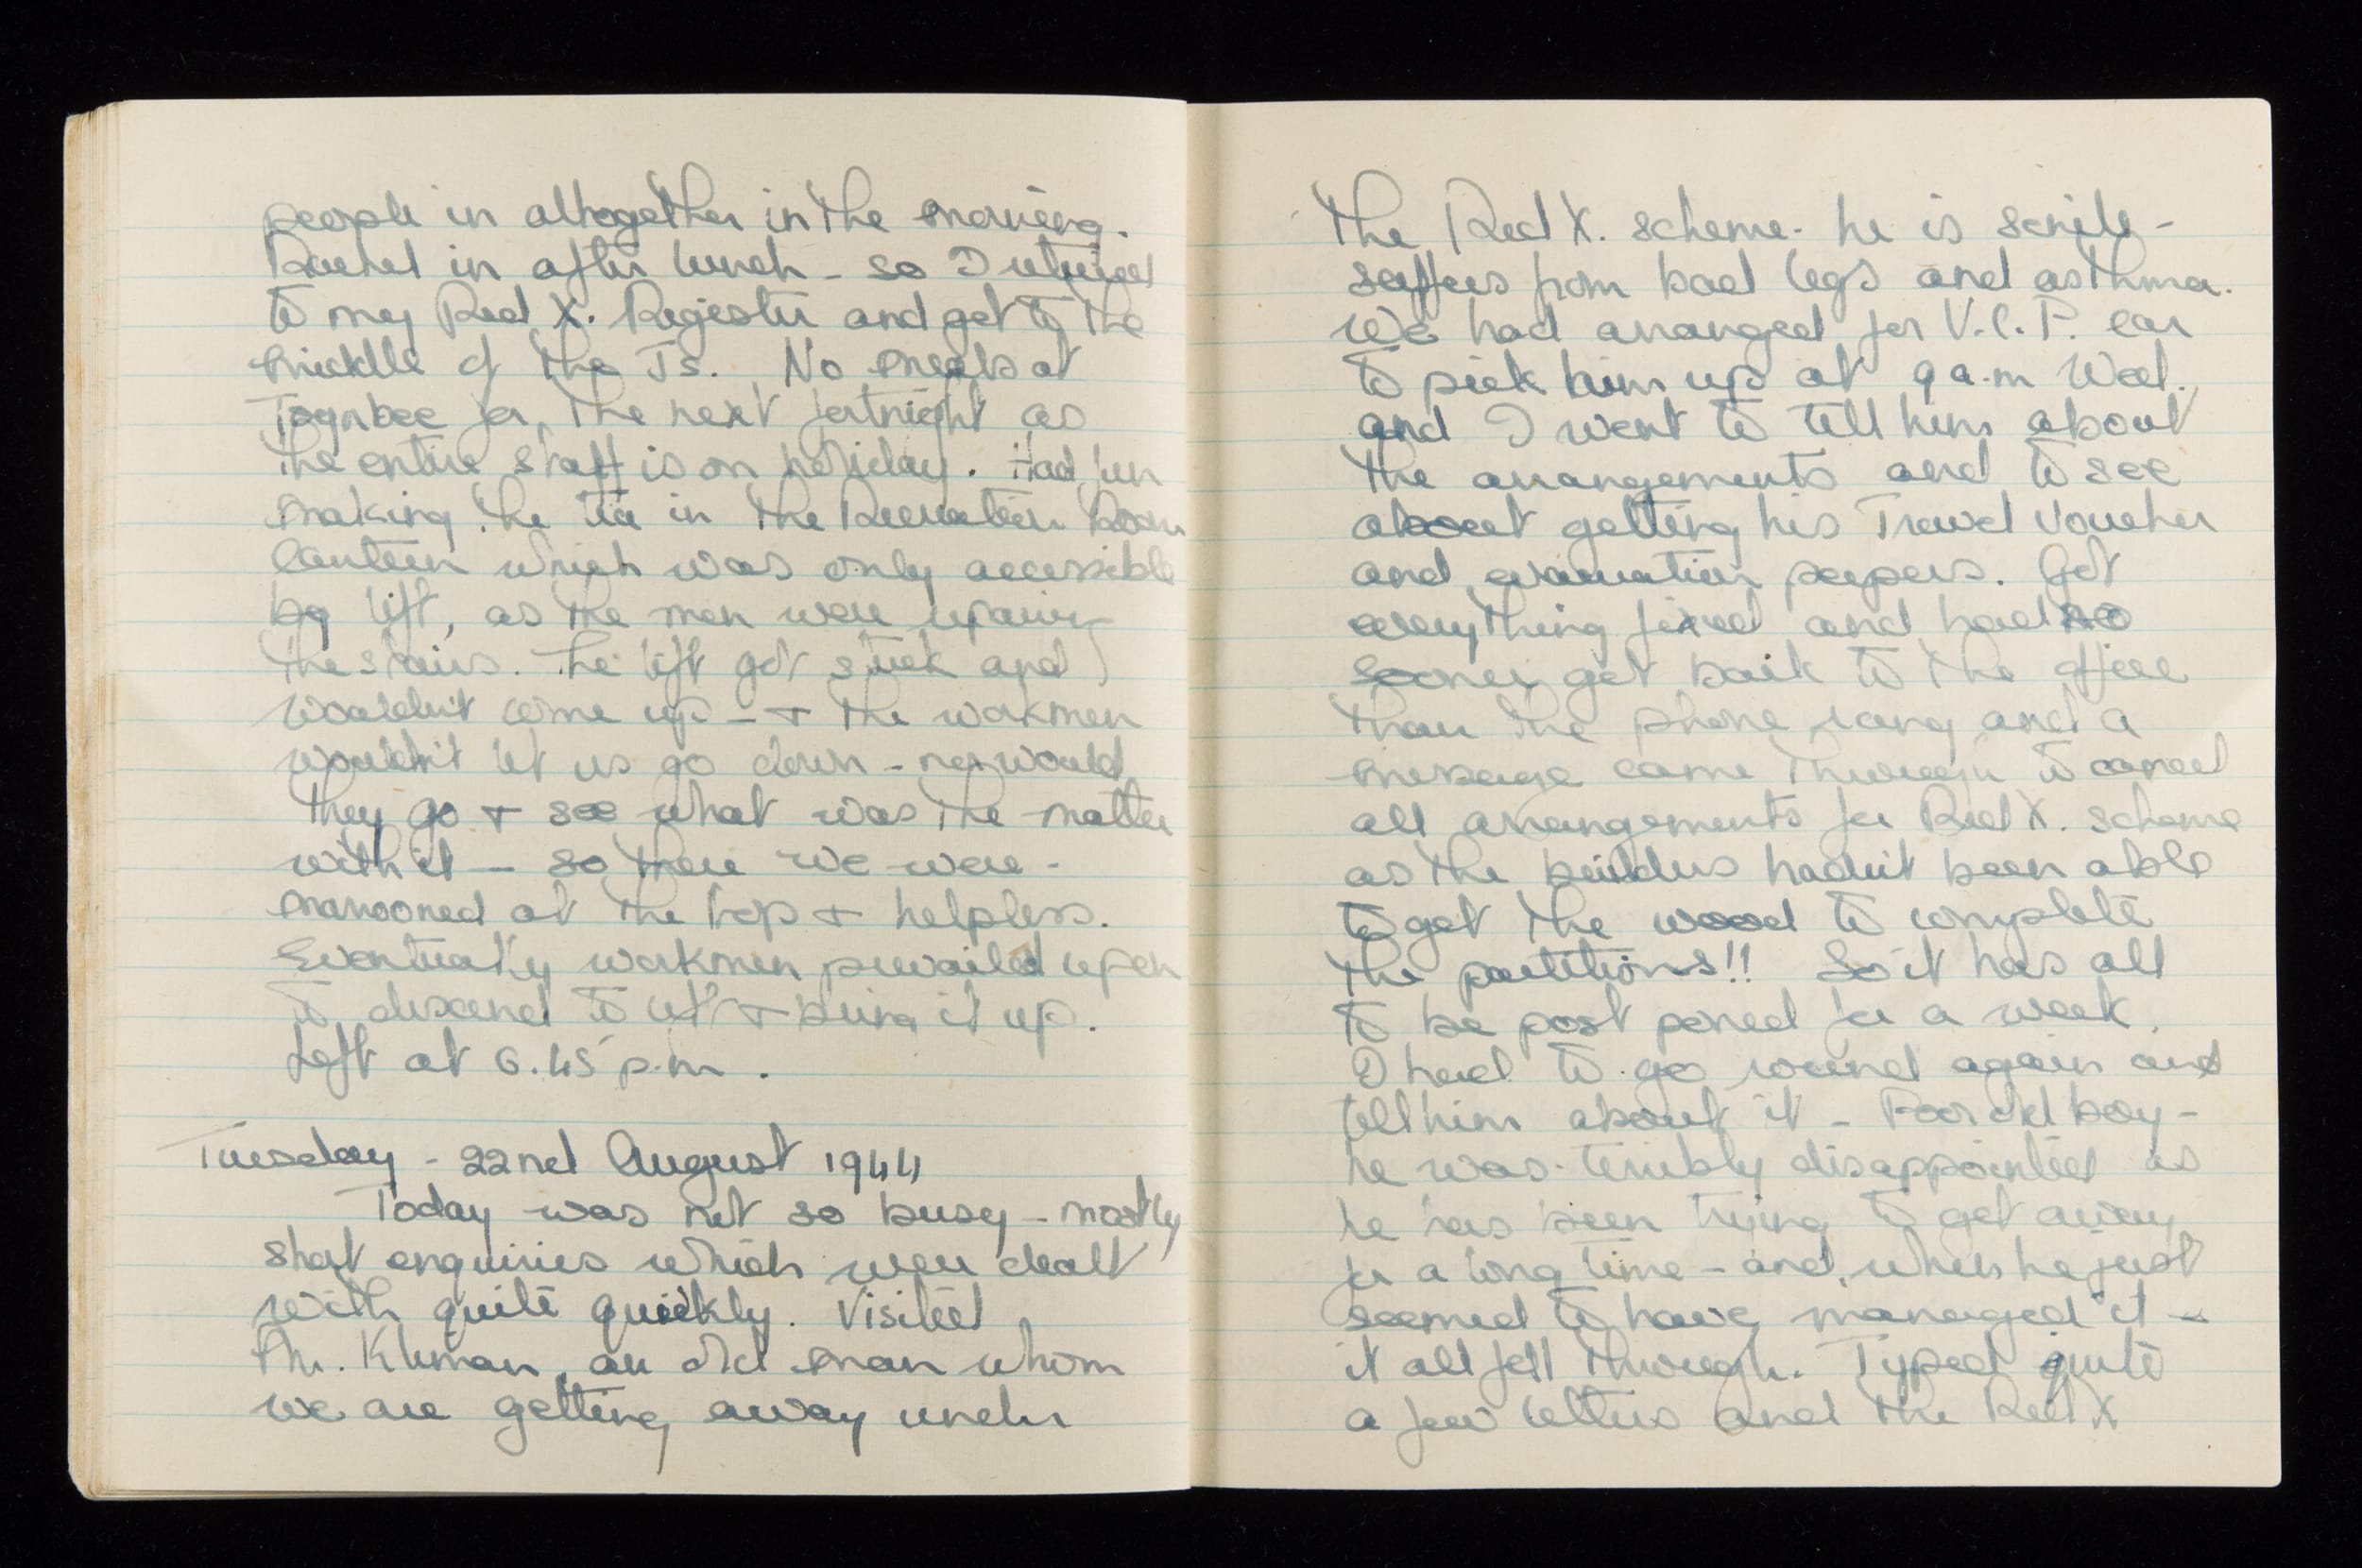 people in altogether in the morning.
Rachel in after lunch - so I retired
to my Red X. Register and got to the
middle of the Js. No meals at
Toynbee for the next fortnight as
the entire staff is on holiday. Had fun
making the tea in the Recreation Room
Canteen which was only accessible
by lift, as the men were repairing
the stairs. The lift got stuck and
wouldn't come up - + the workmen
wouldn't let us go down - nor would
they go + see what was the matter
with it - so there we were -
marooned at the top + helpless.
Eventually workmen prevailed upon
to descend to lift + bring it up.
Left at 6.45 p.m.
Tuesday - 22nd August 1944
Today was not so busy - mostly
short enquiries which were dealt
with quite quickly. Visited
Mr. Kliman, an old man whom
we are getting away under
the Red X. scheme. he is senile -
suffers from bad legs and asthma.
We had arranged for V.C.P. car
to pick him up at 9 a.m Wed.,
and I went to tell him about
the arrangements and to see
about getting his Travel Voucher
and evacuation papers. Got
everything fixed and had no
sooner got back to the office
than the phone rang and a
message came through to cancel
all arrangements for Red X. scheme
as the builders hadn't been able
to get the wood to complete
the partitions!! So it has all
to be post poned for a week.
I had to go round again and
tell him about it - Poor old boy -
he was terribly disappointed as
he has been trying to get away
for a long time - and, when he just
seemed to have managed it -
it all fell through. Typed quite
a few letters and the Red X